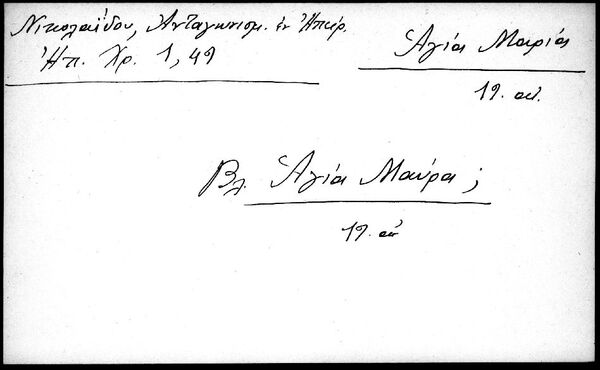 Νικολαΐδου, Ἀνταγωνισμ. ἐν Ἠπείρ.
Ἠπ. Χρ. 1, 49
Ἁγία Μαρία
19. αἰ.
Βλ. Ἁγία Μαύρα;
19. αἰ